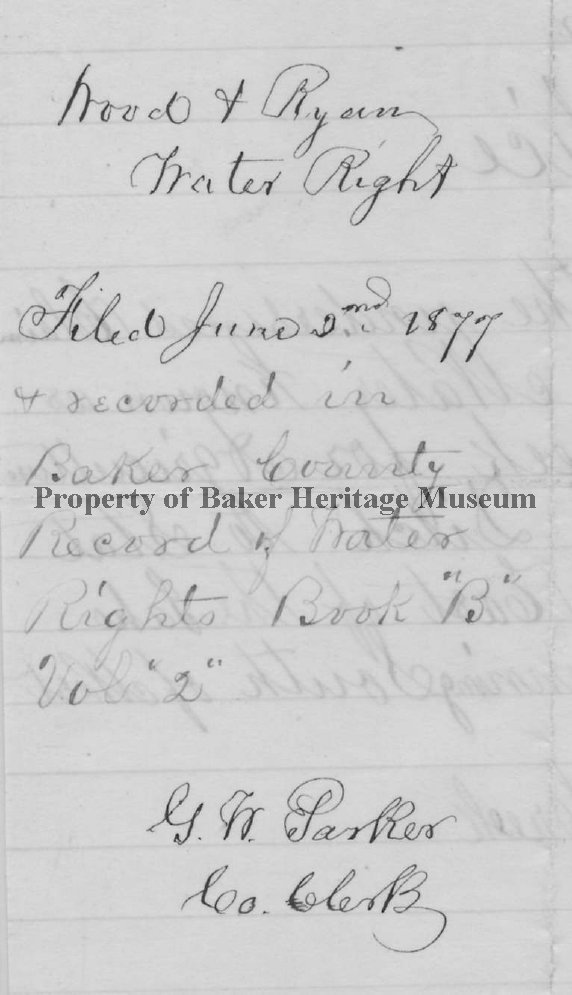 Wood & Ryan
Water Right
Filed June 2nd 1877
& recorded in
Baker County
Property of Baker Heritage Museum
Record of Water
Rights Book "B"
Vol "2"
G. W. Parker
Co. Clerk